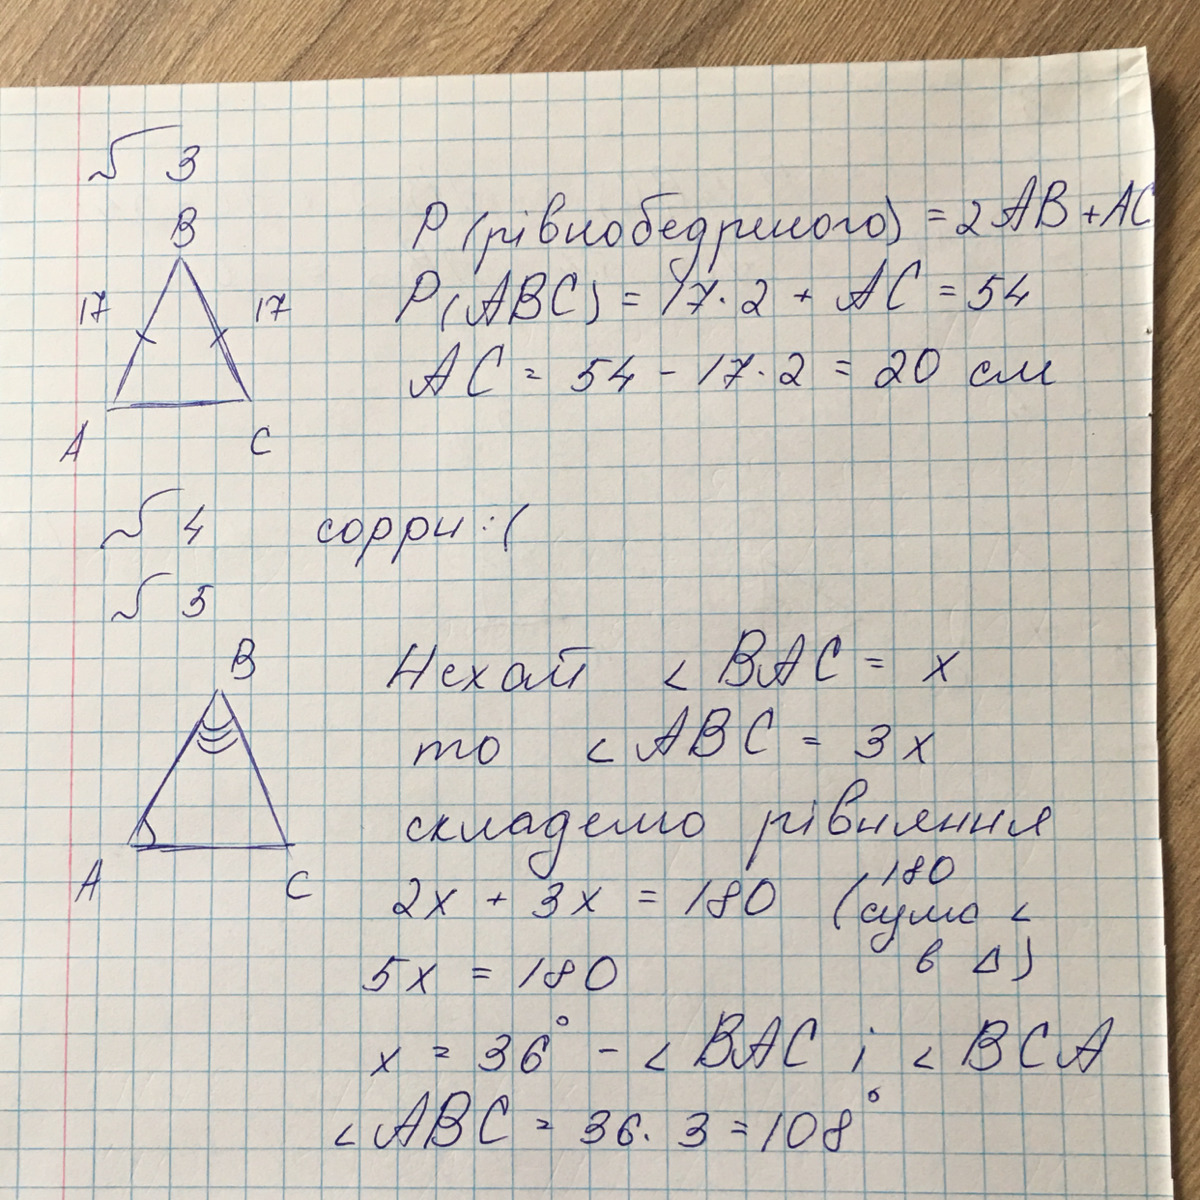 √ 3
B
17 17
A C
P (рівнобедреного) = 2AB + AC
P (ABC) = 17·2 + AC = 54
AC = 54 - 17·2 = 20 см
√ 4 сорри :(
√ 5
B
A C
Нехай < BAC = x
то < ABC = 3x
складемо рівняння
2x + 3x = 180 (сума < 180
в Δ)
5x = 180
x = 36° - < BAC і < BCA
< ABC = 36·3 = 108°